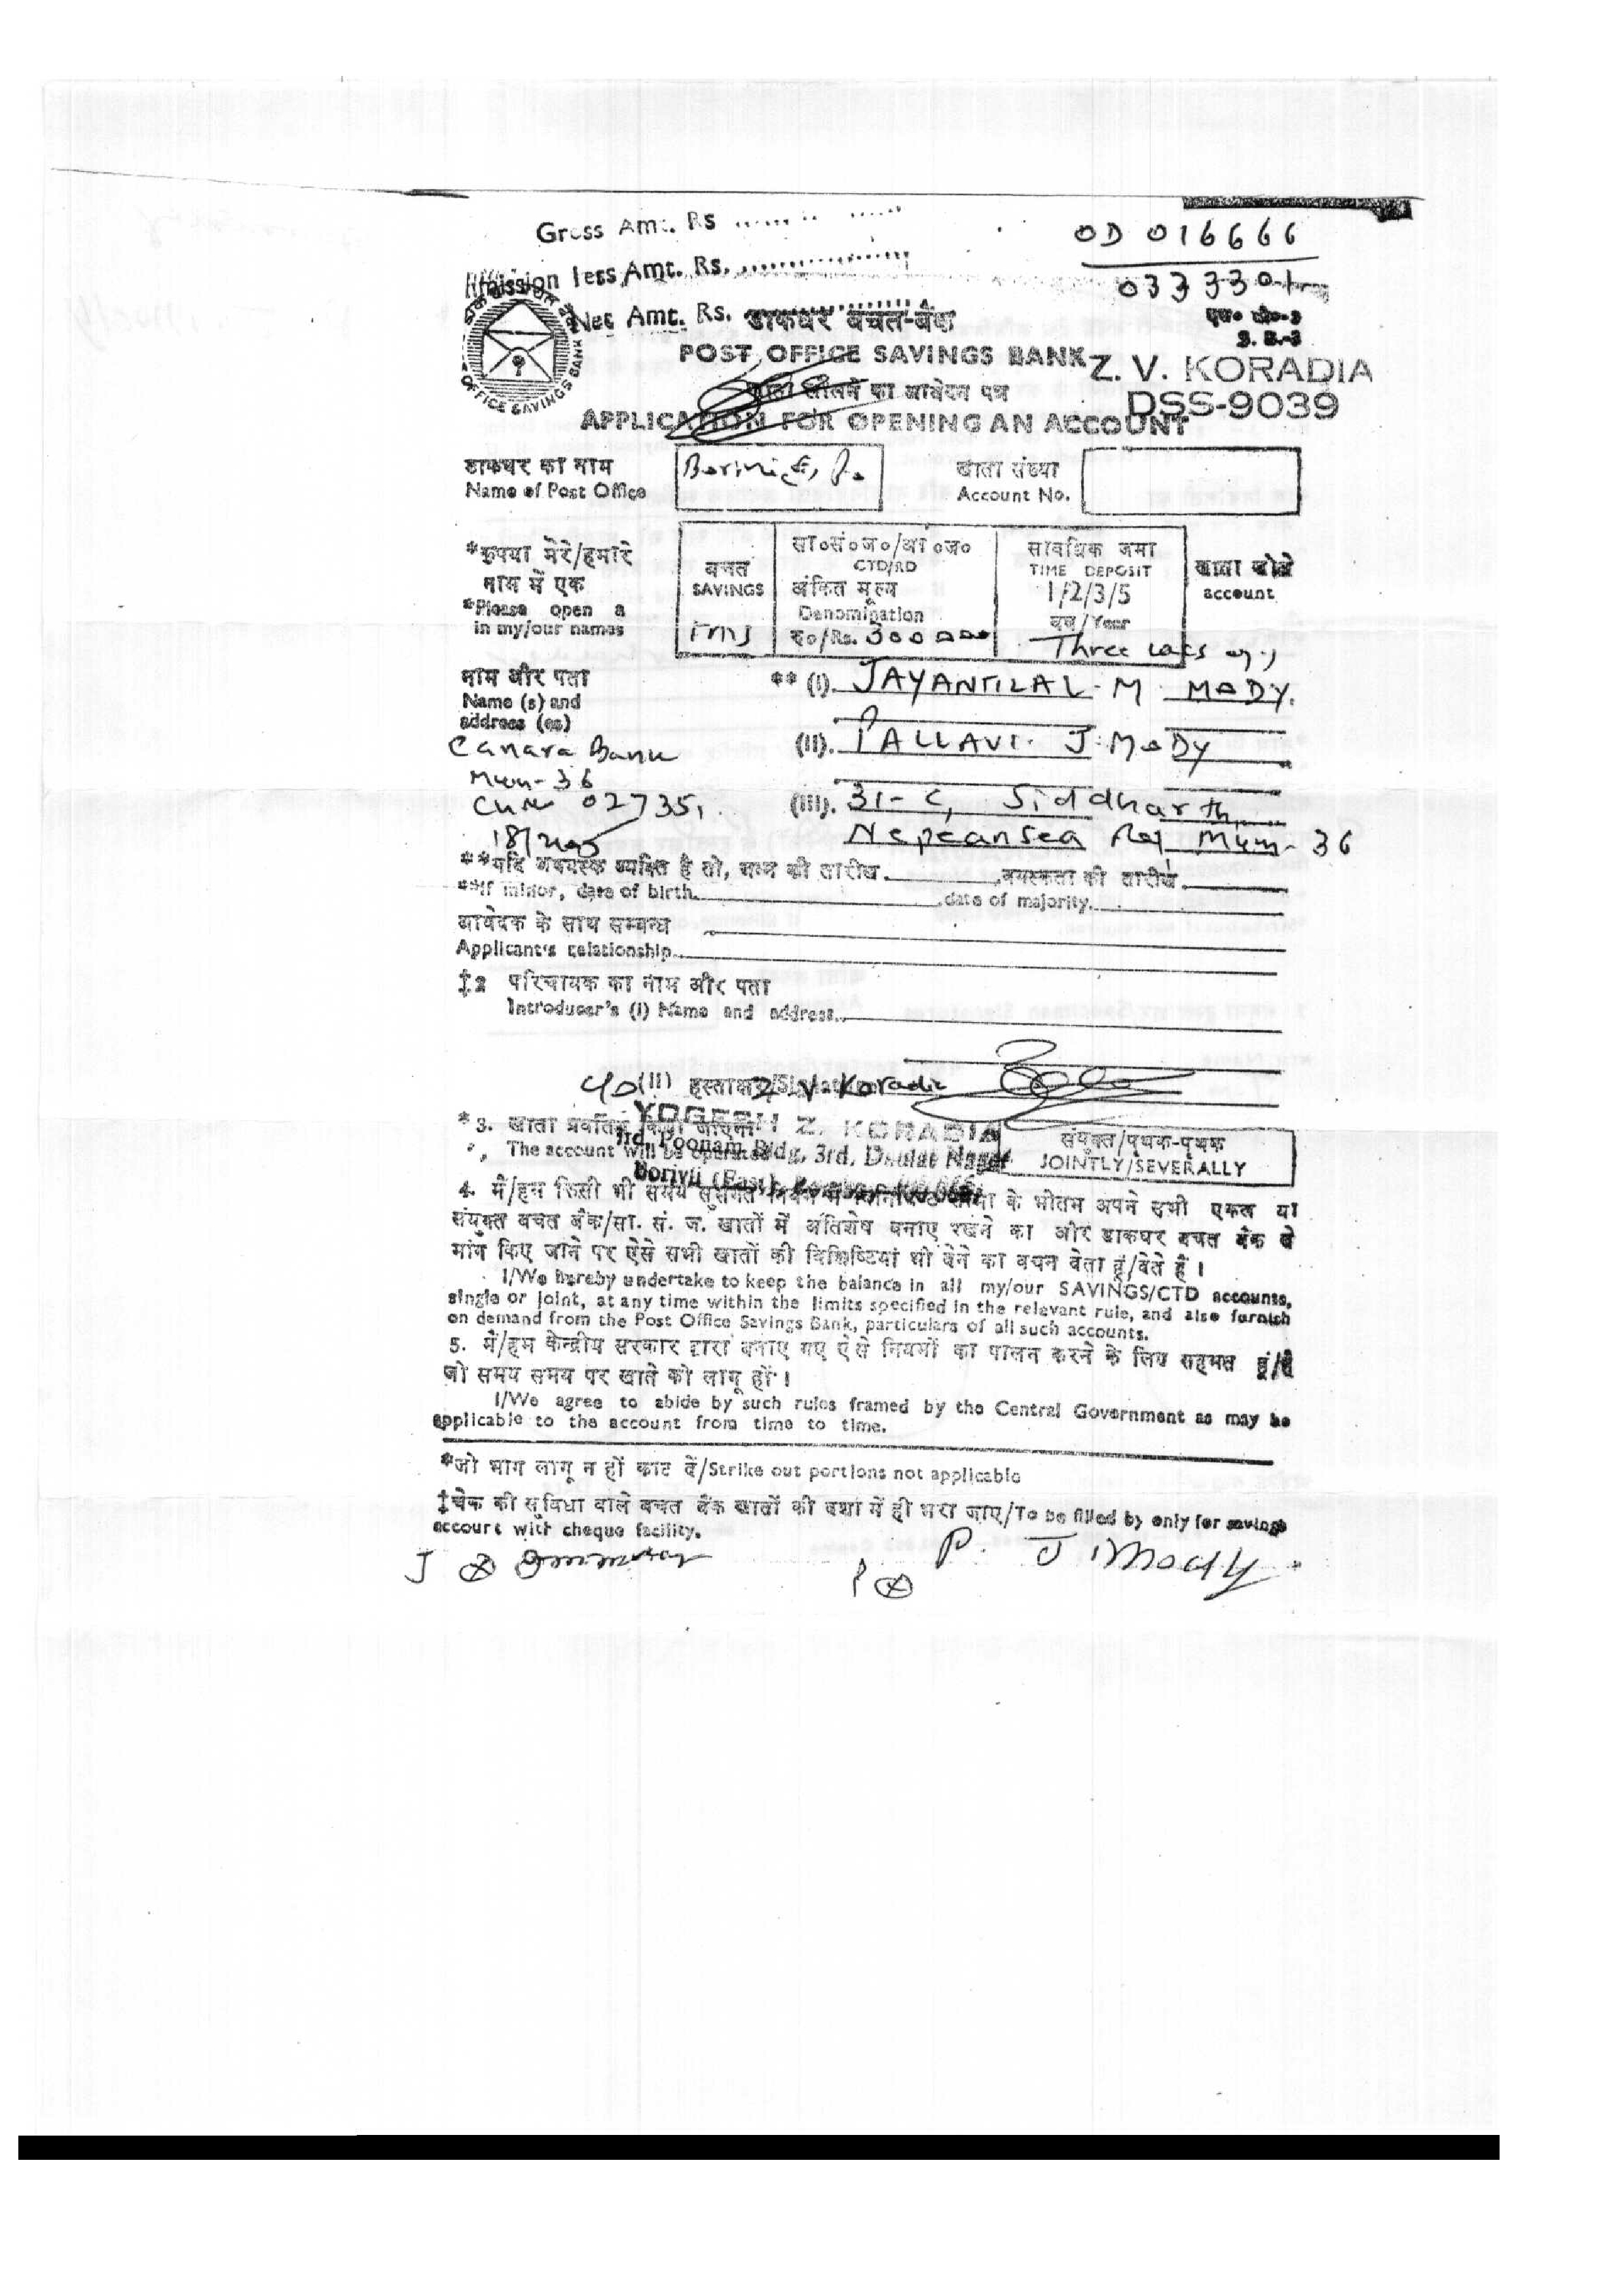 Gross Amt. Rs ...............
less Amt. Rs. ...............
Net Amt. Rs. ...............
OD 016666
0333301
डाकघर बचत-बैंक
एस० बी०-3
S. B.-3
POST OFFICE SAVINGS BANK
Z. V. KORADIA
खाता खोलने का आवेदन पत्र
DSS-9039
APPLICATION FOR OPENING AN ACCOUNT
OFFICE SAVINGS BANK
डाकघर का नाम
Name of Post Office
खाता संख्या
Account No.
*कृपया मेरे/हमारे
नाम में एक
*Please open a
in my/our names
बचत
SAVINGS
सा०सं०ज०/आ०ज०
CTD/RD
अंकित मूल्य
Denomination
रु०/Rs. 300000
सावधिक जमा
TIME DEPOSIT
1/2/3/5
वर्ष/Year
Three Lacs
खाता खोले
account
नाम और पता
Name (s) and
address (es)
** (I). JAYANTILAL M MODY.
(II). PALLAVI J MODY
(III). 31-C, Siddharth
Nepeansea Rd, Mum-36
Canara Bank
Mum-36
02735
**यदि अवयस्क व्यक्ति है तो, जन्म की तारीख वयस्कता की तारीख
**If minor, date of birth date of majority.
आवेदक के साथ सम्बन्ध
Applicant's relationship
‡2 परिचायक का नाम और पता
Introducer's (I) Name and address.
(II) हस्ताक्षर/ Z. V. Koradia
YOGESH Z. KORADIA
*3. खाता प्रवर्तित किया जाएगा
The account will be operated
Poonam Bldg, 3rd, Daulat Nagar
Borivli (East),
संयुक्त/पृथक-पृथक
JOINTLY/SEVERALLY
4. मैं/हम किसी भी समय के भीतर अपने सभी एकल या
संयुक्त बचत बैंक/सा. सं. ज. खातों में अतिशेष बनाए रखने का और डाकघर बचत बैंक से
मांग किए जाने पर ऐसे सभी खातों की विशिष्टियां भी देने का वचन देता हूं/देते हैं ।
I/We hereby undertake to keep the balance in all my/our SAVINGS/CTD accounts,
single or joint, at any time within the limits specified in the relevant rule, and also furnish
on demand from the Post Office Savings Bank, particulars of all such accounts.
5. मैं/हम केन्द्रीय सरकार द्वारा बनाए गए ऐसे नियमों का पालन करने के लिए सहमत हूं/हैं
जो समय समय पर खाते को लागू हों ।
I/We agree to abide by such rules framed by the Central Government as may be
applicable to the account from time to time.
*जो भाग लागू न हों काट दें/Strike out portions not applicable
‡चेक की सुविधा वाले बचत बैंक खातों की दशा में ही भरा जाए/To be filled by only for savings
account with cheque facility.
P. J. Mody